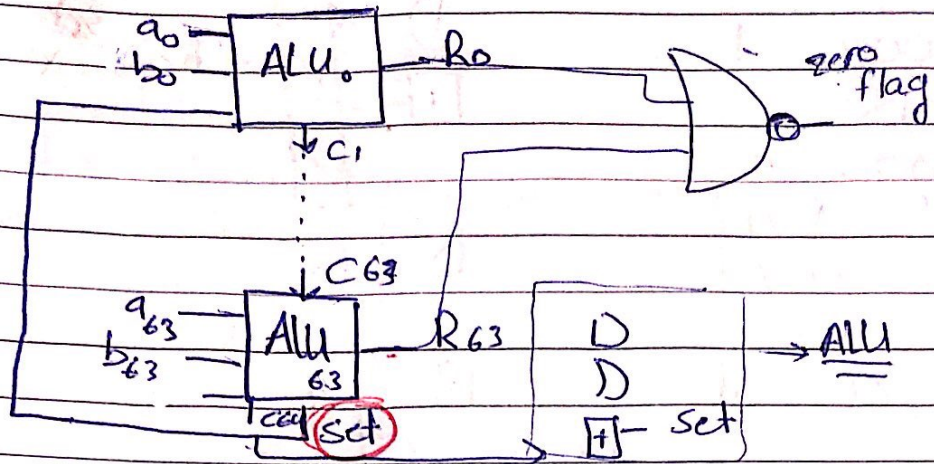 a0
b0
ALU0
R0
zero
flag
C1
C63
a63
b63
ALU
63
R63
C64
Set
+
Set
ALU